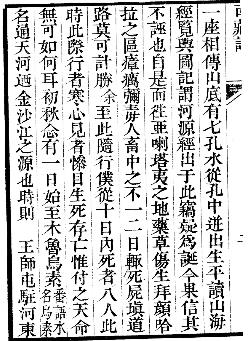 一座相傳山底有七孔水從孔中迸出生平讀山海
經覽輿圖記謂河源經出于此竊疑爲誕今果信其
不誣也自是而徃亜喇塔夷之地藥草傷生拜顔哈
拉之區瘴癘彌毒人畜中之不一二日輒死屍塡道
路莫可計勝余至此隨行僕從十日內死者八人此
時此際行者寒心見者慘目生死存亡惟付之天命
無可如何耳初秋念有一日始至木魯烏素番語水名烏素
名通天河迺金沙江之源也時則 王師屯駐河東